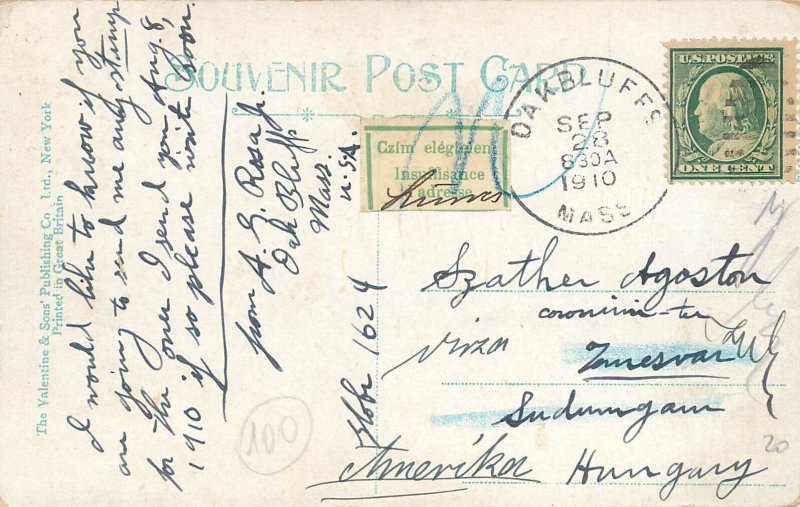 SOUVENIR POST CARD
The Valentine & Sons' Publishing Co., Ltd., New York
Printed in Great Britain
I would like to know if you
are going to send me any stamp
for the ones I send you Aug. 8,
1910 if so please write soon.
from A. G. Rosa Jr.
Oak Bluffs
Mass.
U.S.A.
Globe 1624
Czím elégtelen
Insuffisance
d'adresse
OAK BLUFFS
SEP
28
830A
1910
MASS
U.S. POSTAGE
ONE CENT
Szather Agoston
coronini-ter
vissza
Temesvar
Sudungarn
Hungary
Amerika
100
20